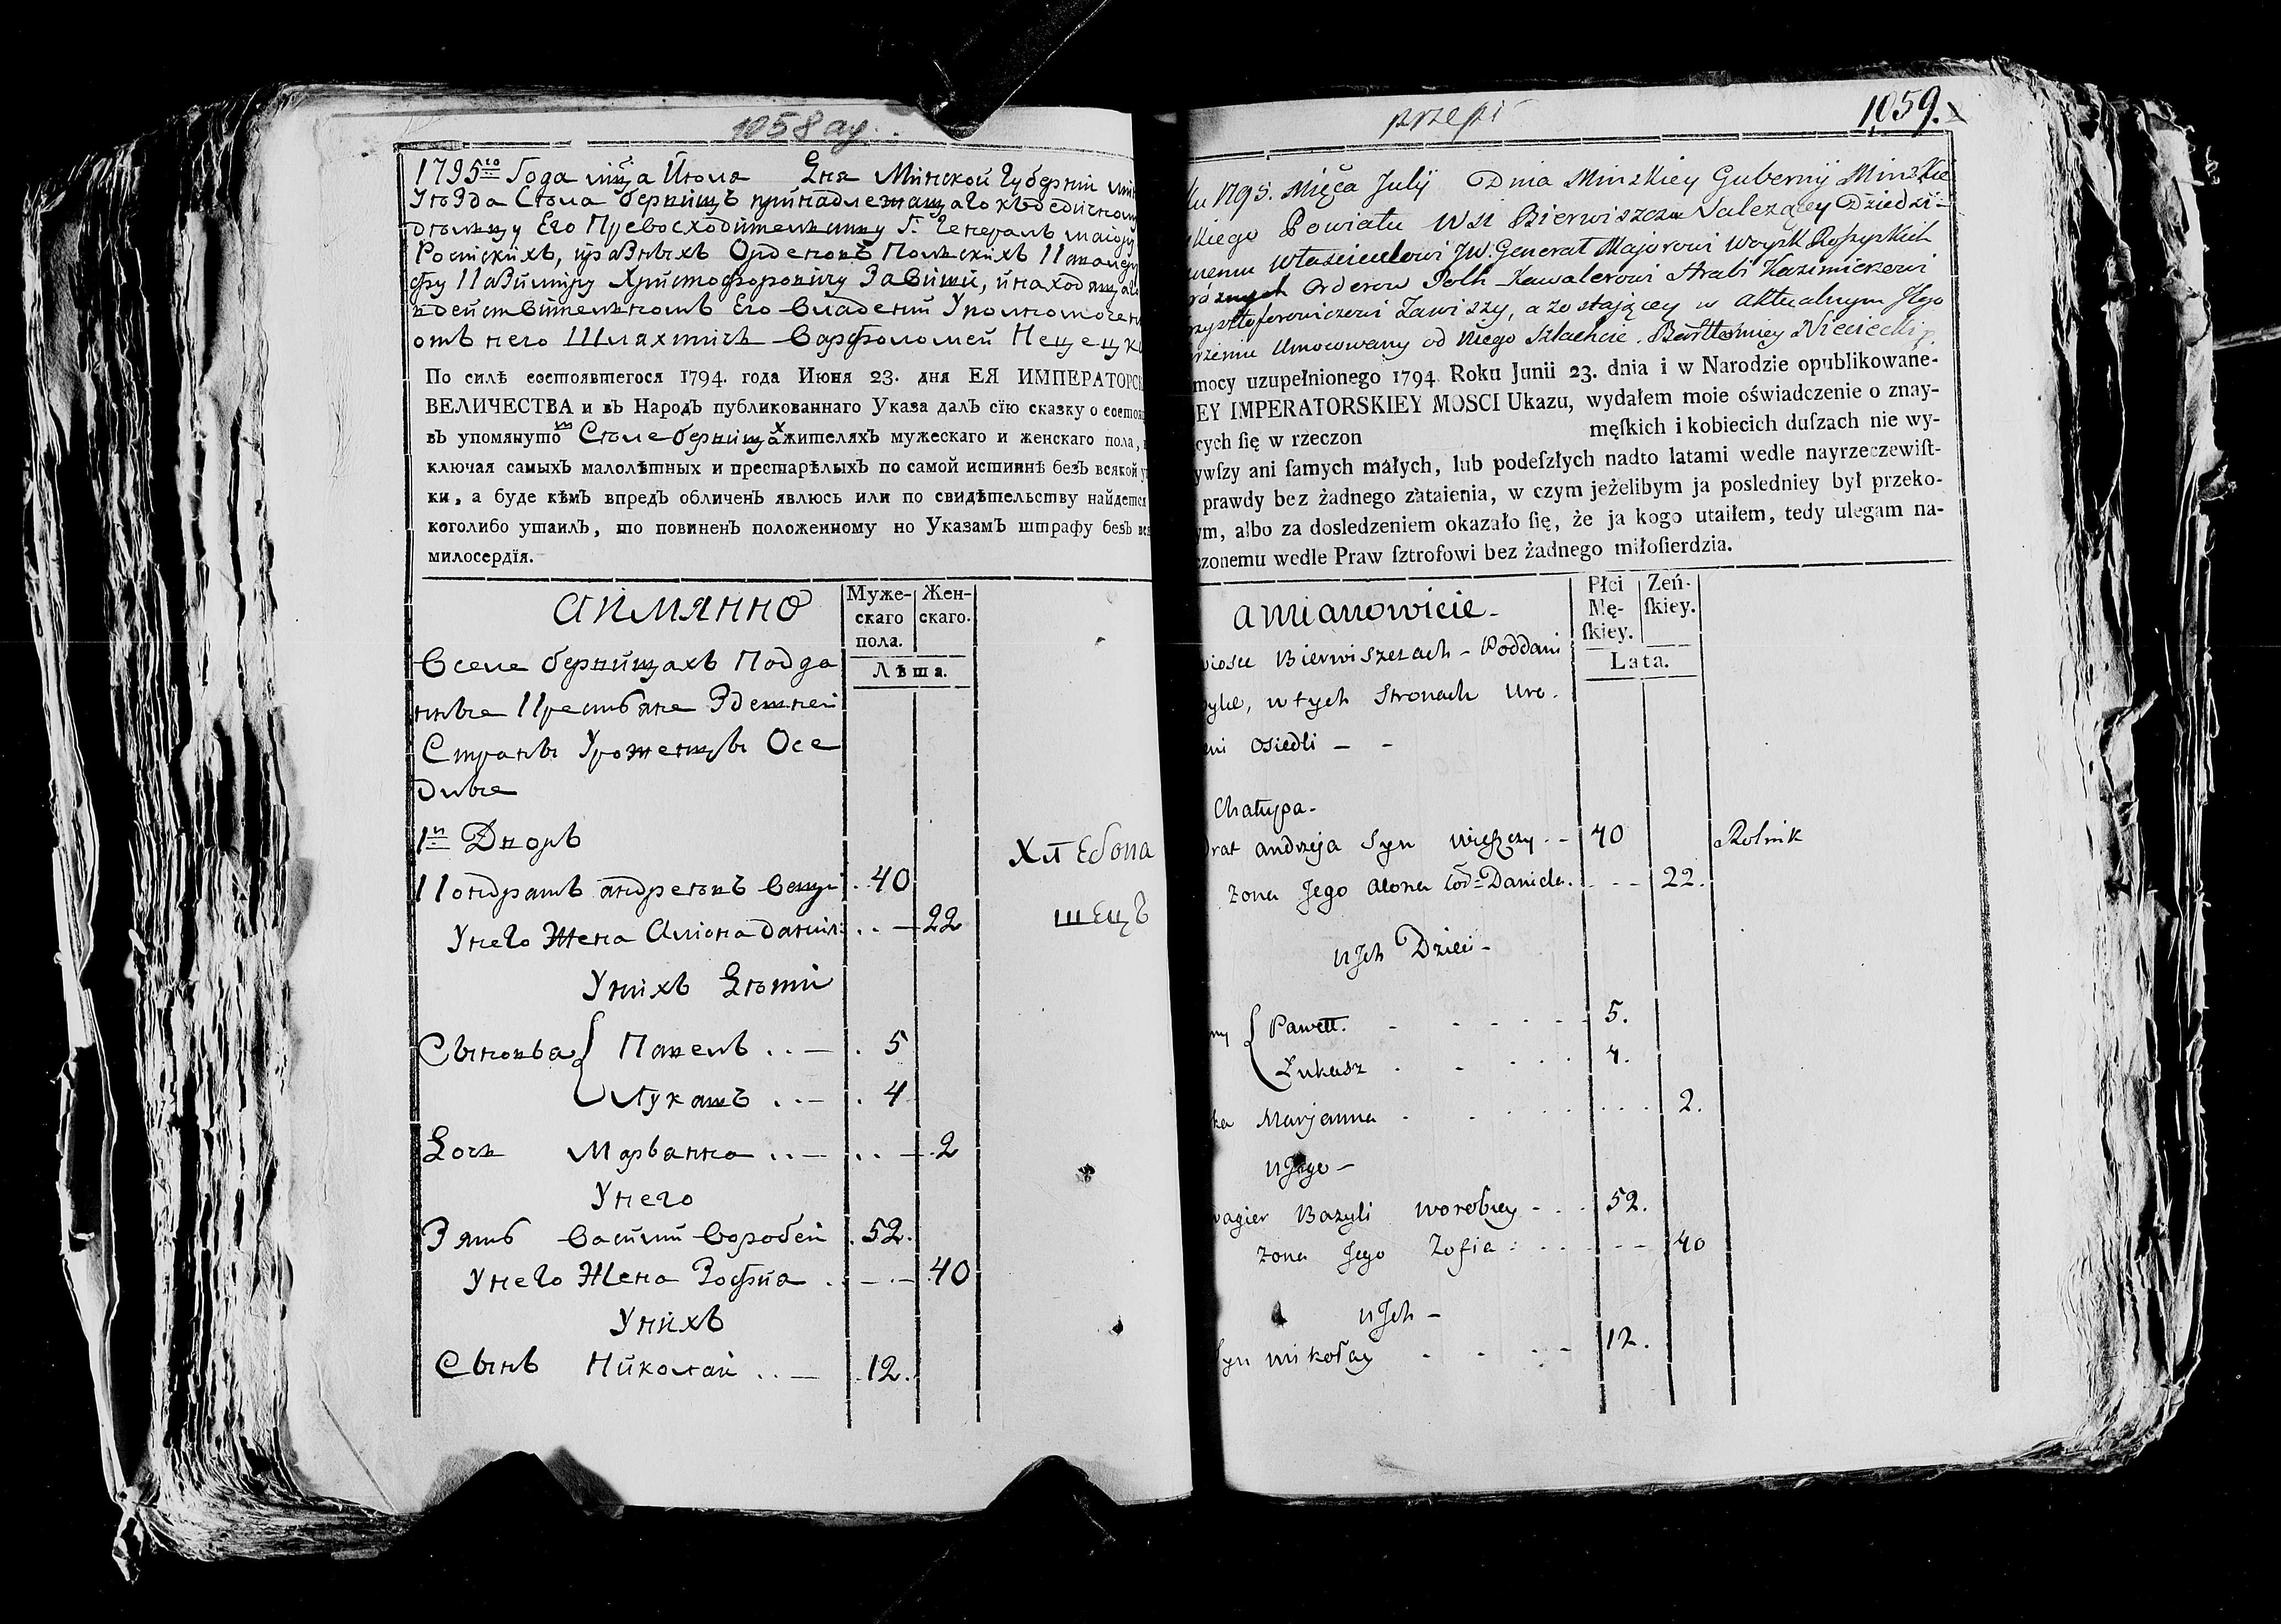 1058 ау.
1795го Года мца Июля Дня Минской Губернии
Уезда Села бервищъ принадлежащаго
Его Превосходительству Г. Генералъ маіору
Росискихъ, Орденовъ Полскихъ Кавалеру
Христофоровичу Завиши, инаходящаго
вдействителномъ Его владении Уполномочен
отъ него Шляхтичъ Варфоломей Нецецки
По силѣ состоявшегося 1794. года Июня 23. дня ЕЯ ИМПЕРАТОРСК
ВЕЛИЧЕСТВА и въ Народъ публикованнаго Указа далъ сїю сказку о состоя
въ упомянутомъ Селе бервищахъ жителяхъ мужескаго и женскаго пола,
ключая самыхъ малолѣтныхъ и престарѣлыхъ по самой истиннѣ безъ всякой у
ки, а буде кѣмъ впредъ обличенъ явлюсь или по свидѣтельству найдется
коголибо утаилъ, то повиненъ положенному по Указамъ штрафу безъ вся
милосердїя.
аимянно
Муже-скаго пола. Жен-скаго.
Лѣта.
Вселе бервищахъ Подда
нные Крестьяне Здешней
Страны Уроженцы Осе
длые
1й Дворъ
Кондратъ андреевъ 40 Хлебопа
Унего Жена Алiона данил: 22 шецъ
Унихъ Дети
Сыновья Павелъ 5
Лукашъ 4
Дочь Марьанна 2
Унего
Зять Василий Воробей 52.
Унего Жена Зофия 40
Унихъ
Сынъ Николай 12.
przepi
1059.
ku 1795. Mięca Julij Dnia Minzkiey Gubernij Minzkie
kiego Powiatu Wsi Bierwiszcza Nalezący Dziedzi-
włascicielowi JW. Generał Majorowi Woysk Roszyskich
róznych Orderow Polh Kawalerowi Hrabi Kazimierzowi
rzysztoferowiczowi Zawiszy, a zostającey w aktualnym Jego
rzeniu Umocowany od Niego Szlachcic Bartłomiey Nieciecki
mocy uzupełnionego 1794 Roku Junii 23. dnia i w Narodzie opublikowane-
EY IMPERATORSKIEY MOSCI Ukazu, wydałem moie oświadczenie o znay-
cych ſię w rzeczon męſkich i kobiecich duſzach nie wy-
ywſzy ani ſamych małych, lub podeſzłych nadto latami wedle nayrzeczewiſt-
prawdy bez żadnego zataienia, w czym jeżelibym ja posledniey był przeko-
ym, albo za dosledzeniem okazało ſię, że ja kogo utaiłem, tedy ulegam na-
czonemu wedle Praw ſztrofowi bez żadnego miłoſierdzia.
amianowicie
Płci Mę-ſkiey. Zeń-ſkiey.
Lata.
iosce Bierwiszczach - Poddani
w tych Stronach Uro.
eni osiedli - -
Chałupa -
drat andrzeja Syn 40 Rolnik
zona Jego Alona Daniela. 22.
u Jch Dzieci -
ny Pawełł. 5.
Łukasz 4.
ka Marjanna 2.
u Jego -
wagier Bazyli worobiey 52.
zona Jego Zofia 40
u Jch -
Syn mikołay 12.